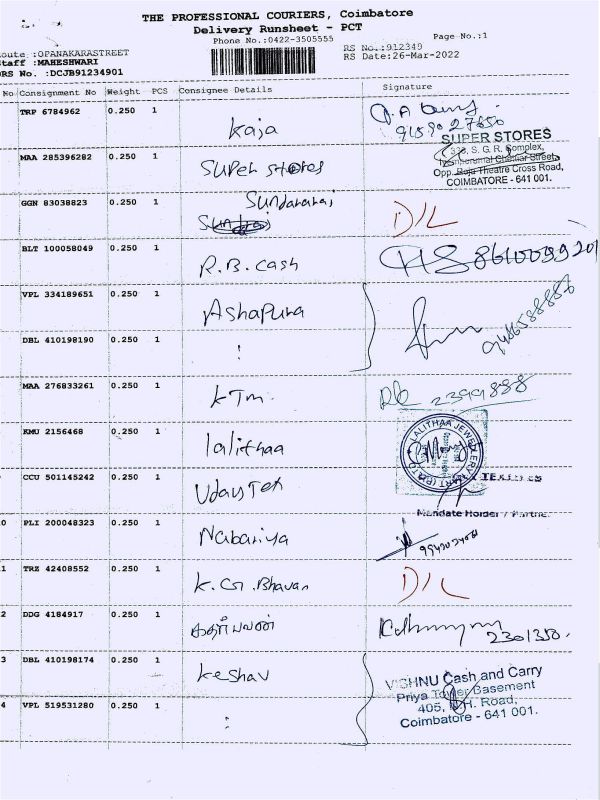 THE PROFESSIONAL COURIERS, Coimbatore
Delivery Runsheet - PCT
Phone No.:0422-3505555
Page No.:1
Route :OPANAKARASTREET
Staff :MAHESHWARI
DRS No. :DCJB91234901
RS No.:912349
RS Date:26-Mar-2022
No Consignment No Weight PCS Consignee Details Signature
TRP 6784962 0.250 1 Kaja
MAA 285396282 0.250 1 Super stores
SUPER STORES
S. G. R. Complex,
Opp. Raja Theatre Cross Road,
COIMBATORE - 641 001.
GGN 83038823 0.250 1 Sundararaj D/L
BLT 100058049 0.250 1 R.B. Cash
VPL 334189651 0.250 1 Ashapura 9486588856
DBL 410198190 0.250 1 :
MAA 276833261 0.250 1 KTM 2399888
KMU 2156468 0.250 1 lalithaa
LALITHAA JEWELLERY MART (P) LTD
CCU 501145242 0.250 1 Uday Tex
Mandate Holder / Partner
0 PLI 200048323 0.250 1 Nabariya
1 TRZ 42408552 0.250 1 K.G. Bhavan D/L
2 DDG 4184917 0.250 1 கதிரவன் 2301350.
3 DBL 410198174 0.250 1 Keshav
4 VPL 519531280 0.250 1 :
VISHNU Cash and Carry
Priya Tower Basement
405, N.H. Road,
Coimbatore - 641 001.